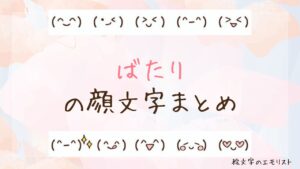 (^⌣^) (•⌣<) (>⌣<) (^−^) (>◡<)
ばたり
の顔文字まとめ
(^−^)✨ (^⌣^) (^▽^) (⌣⌣⌣) (♡⌣♡)
絵文字のエモリスト